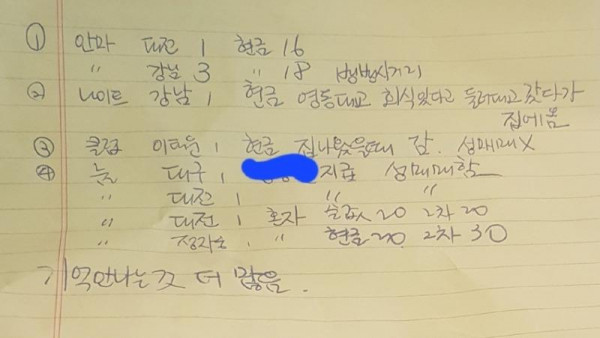 ① 안마 대전 1 현금 16
" 강남 3 " 18 뱅뱅사거리
② 나이트 강남 1 현금 영동대교 회식있다고 둘러대고 갔다가
집에옴
③ 클럽 이태원 1 현금 집나왔을때 감. 성매매X
④ 대구 1 성매매함
" 대전 1 " "
" 대전 1 혼자 20 2차 20
" 정자 " 현금 20. 2차 30
기억안나는것 더 많음.